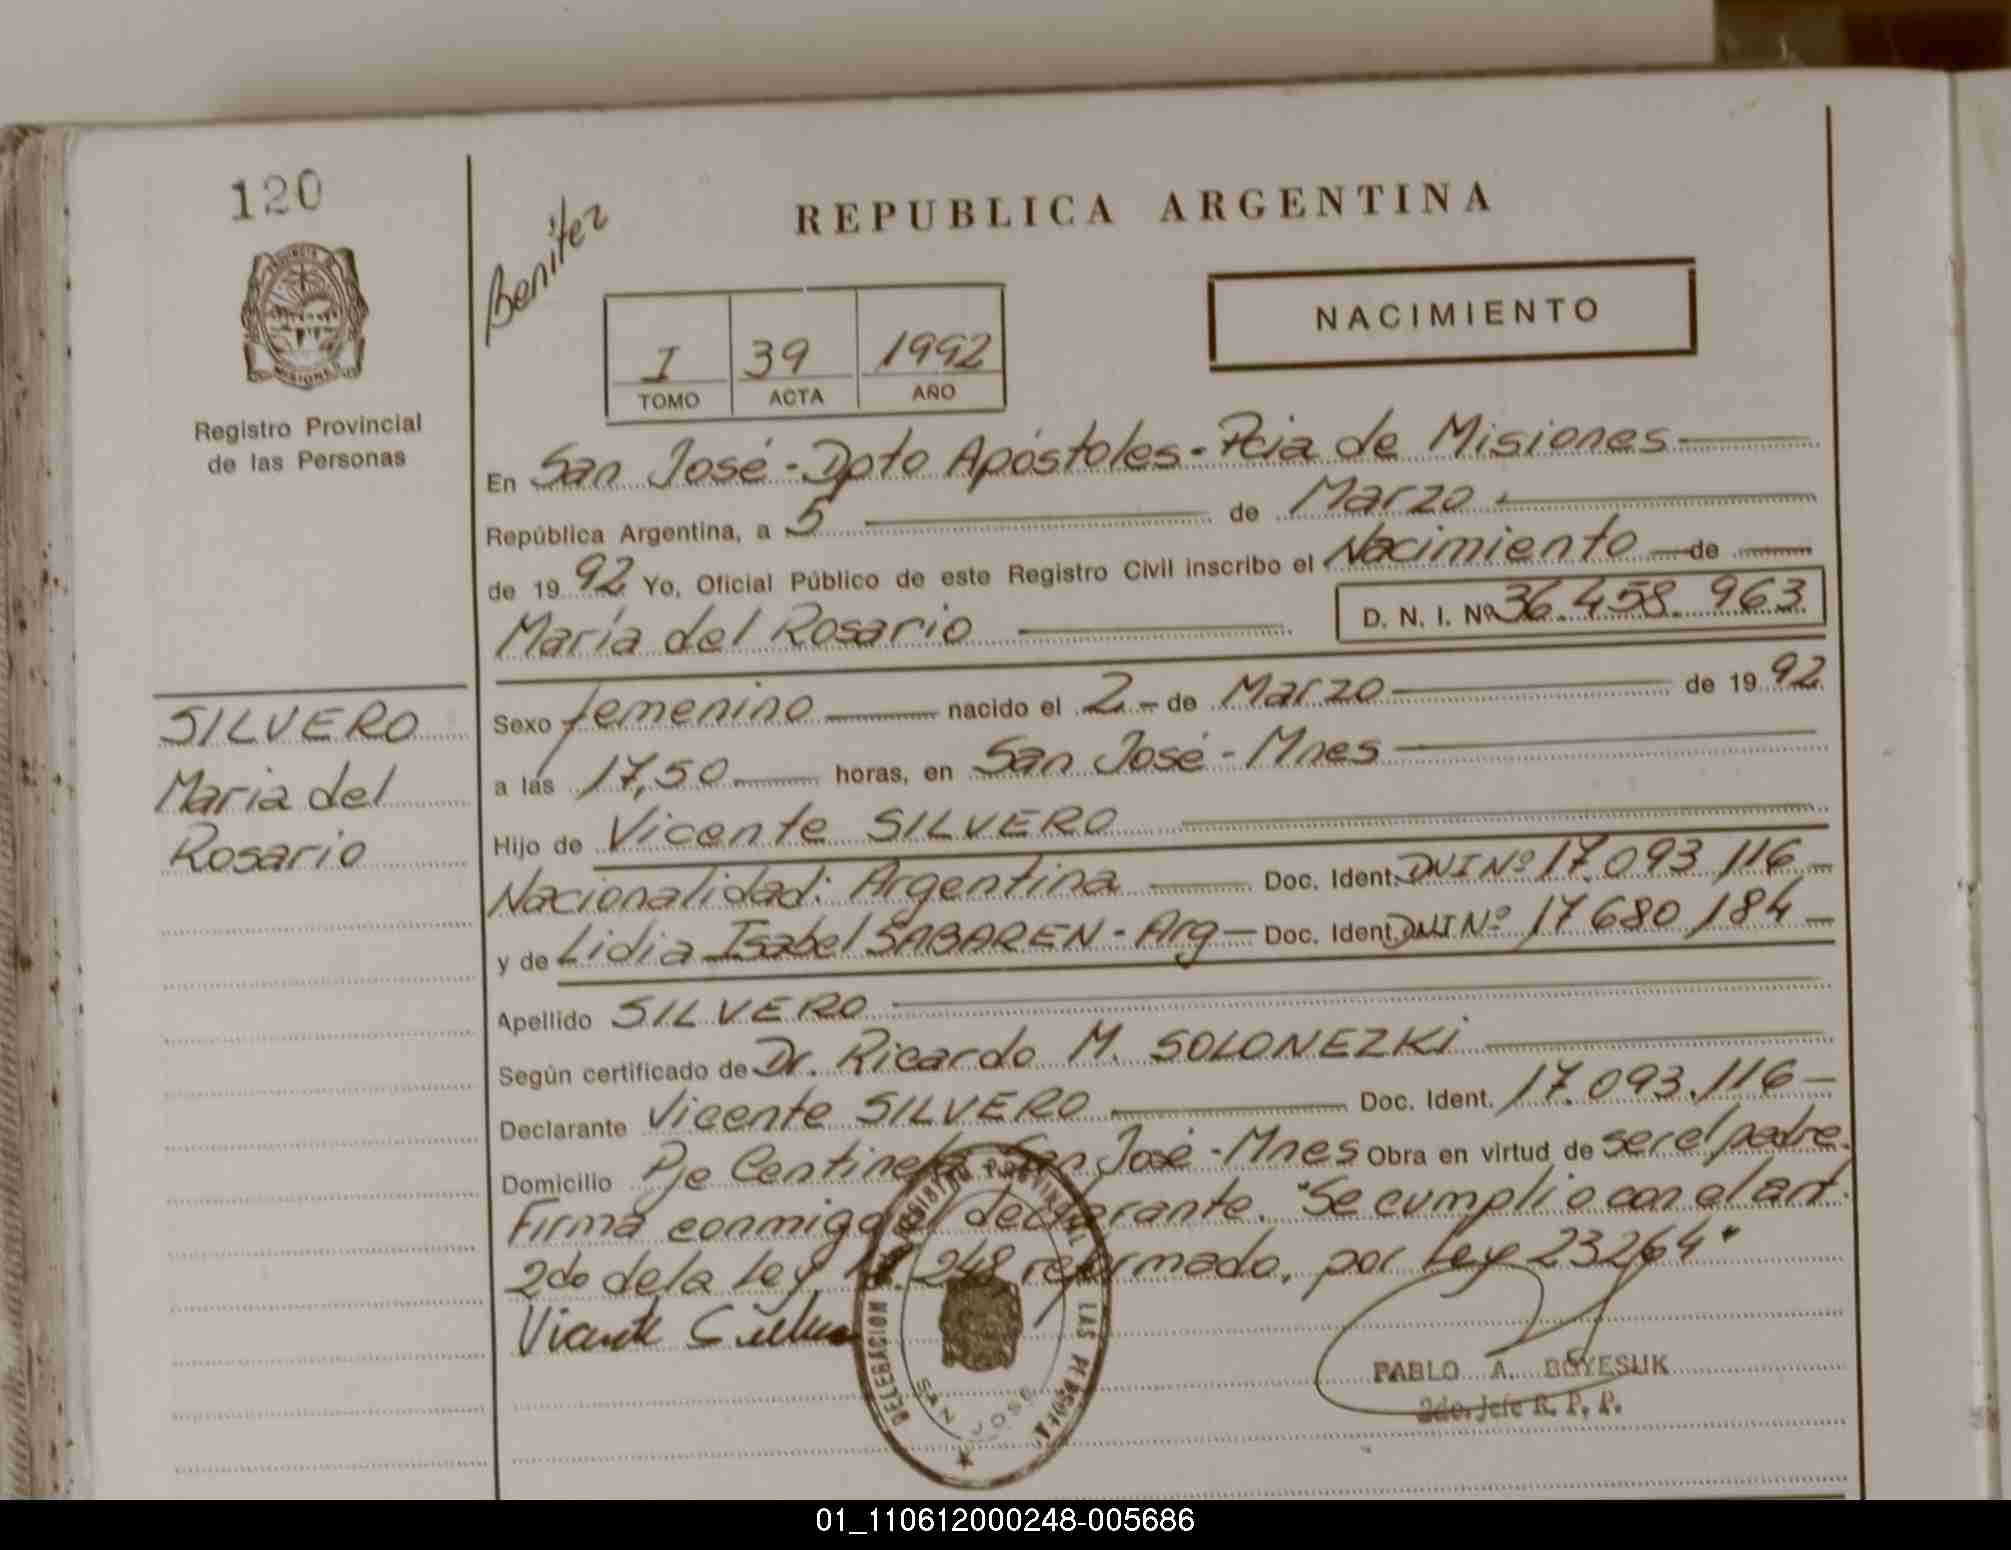 120
Registro Provincial
de las Personas
SILVERO
Maria del
Rosario
Benitez
REPUBLICA ARGENTINA
NACIMIENTO
I 39 1992
TOMO ACTA AÑO
En San José - Dpto Apóstoles - Pcia de Misiones
República Argentina, a 5 de Marzo
de 19 92 Yo, Oficial Público de este Registro Civil inscribo el Nacimiento de
María del Rosario D. N. I. Nº 36.458.963
Sexo femenino nacido el 2 - de Marzo de 19 92
a las 17,50 horas, en San José - Mnes
Hijo de Vicente SILVERO
Nacionalidad: Argentina Doc. Ident. DNI Nº 17.093.116
y de Lidia Isabel SABAREN - Arg - Doc. Ident. DNI Nº 17680184
Apellido SILVERO
Según certificado de Dr. Ricardo M. SOLONEZKI
Declarante Vicente SILVERO Doc. Ident. 17.093.116
Domicilio Pje Centinela San José - Mnes Obra en virtud de ser el padre.
Firma conmigo el declarante. "Se cumplio con el art.
2do de la Ley 248 reformado, por Ley 23264"
Vicente Silvero
DELEGACION REGISTRO PROVINCIAL DE LAS PERSONAS
SAN JOSE
PABLO A. BOYESUK
2do. Jefe R. P. P.
01_110612000248-005686